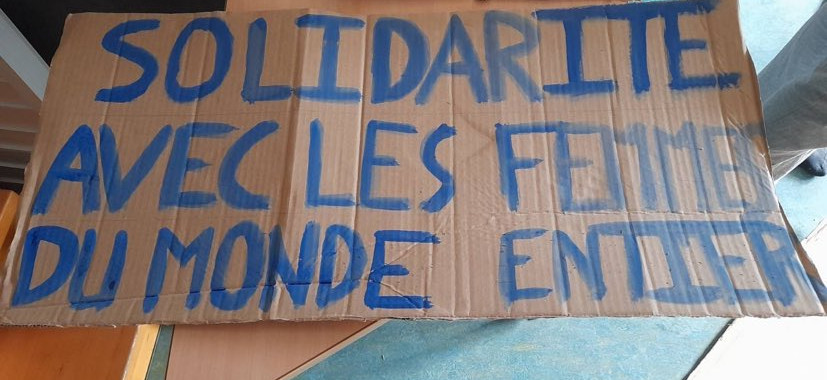 SOLIDARITE
AVEC LES FEMMES
DU MONDE ENTIER